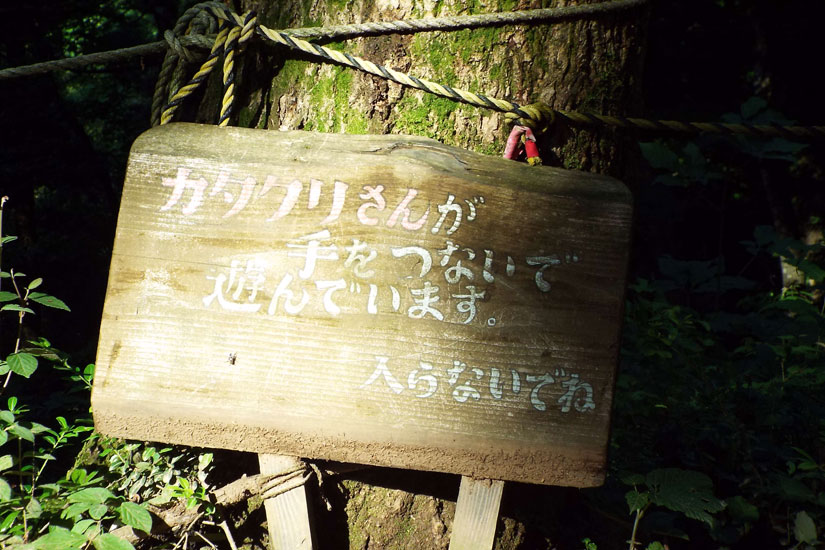 カタクリさんが
手をつないで
遊んでいます。
入らないでね